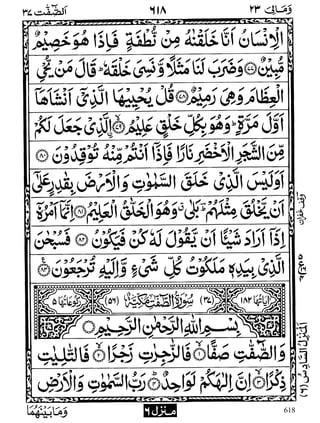 وَمَالِیَ ٢٣
٦١٨
اَلصّٰٓفّٰت ٣٧
الْاِنْسَانُ اَنَّا خَلَقْنٰهُ مِنْ نُّطْفَةٍ فَاِذَا هُوَ خَصِيْمٌ
مُّبِيْنٌ ﴿٧٧﴾ وَضَرَبَ لَنَا مَثَلًا وَّنَسِىَ خَلْقَهٗ ؕ قَالَ مَنْ يُّحْىِ
الْعِظَامَ وَهِىَ رَمِيْمٌ ﴿٧٨﴾ قُلْ يُحْيِيْهَا الَّذِىْۤ اَنْشَاَهَاۤ
اَوَّلَ مَرَّةٍ ؕ وَهُوَ بِكُلِّ خَلْقٍ عَلِيْمُ ﴿٧٩﴾ ۨالَّذِىْ جَعَلَ لَكُمْ
مِّنَ الشَّجَرِ الْاَخْضَرِ نَارًا فَاِذَاۤ اَنْتُمْ مِّنْهُ تُوْقِدُوْنَ ﴿٨٠﴾
اَوَلَيْسَ الَّذِىْ خَلَقَ السَّمٰوٰتِ وَالْاَرْضَ بِقٰدِرٍ عَلٰٓى
اَنْ يَّخْلُقَ مِثْلَهُمْ ؕ بَلٰى وَهُوَ الْخَلّٰقُ الْعَلِيْمُ ﴿٨١﴾ اِنَّمَاۤ اَمْرُهٗۤ
اِذَاۤ اَرَادَ شَيْئًا اَنْ يَّقُوْلَ لَهٗ كُنْ فَيَكُوْنُ ﴿٨٢﴾ فَسُبْحٰنَ
الَّذِىْ بِيَدِهٖ مَلَكُوْتُ كُلِّ شَىْءٍ وَّاِلَيْهِ تُرْجَعُوْنَ ﴿٨٣﴾
اٰيَاتُهَا ١٨٢ (٣٧) سُوْرَةُ الصّٰٓفّٰتِ مَكِّيَّةٌ (٥٦) رُكُوْعَاتُهَا ٥
بِسْمِ اللّٰهِ الرَّحْمٰنِ الرَّحِيْمِ
وَالصّٰٓفّٰتِ صَفًّا ﴿١﴾ فَالزّٰجِرٰتِ زَجْرًا ﴿٢﴾ فَالتّٰلِيٰتِ
ذِكْرًا ﴿٣﴾ اِنَّ اِلٰهَكُمْ لَوَاحِدٌ ﴿٤﴾ رَبُّ السَّمٰوٰتِ وَالْاَرْضِ
وَمَا بَيْنَهُمَا
مَنْزِل ٦
618
وقف غفران
المنزل السادس (٦)